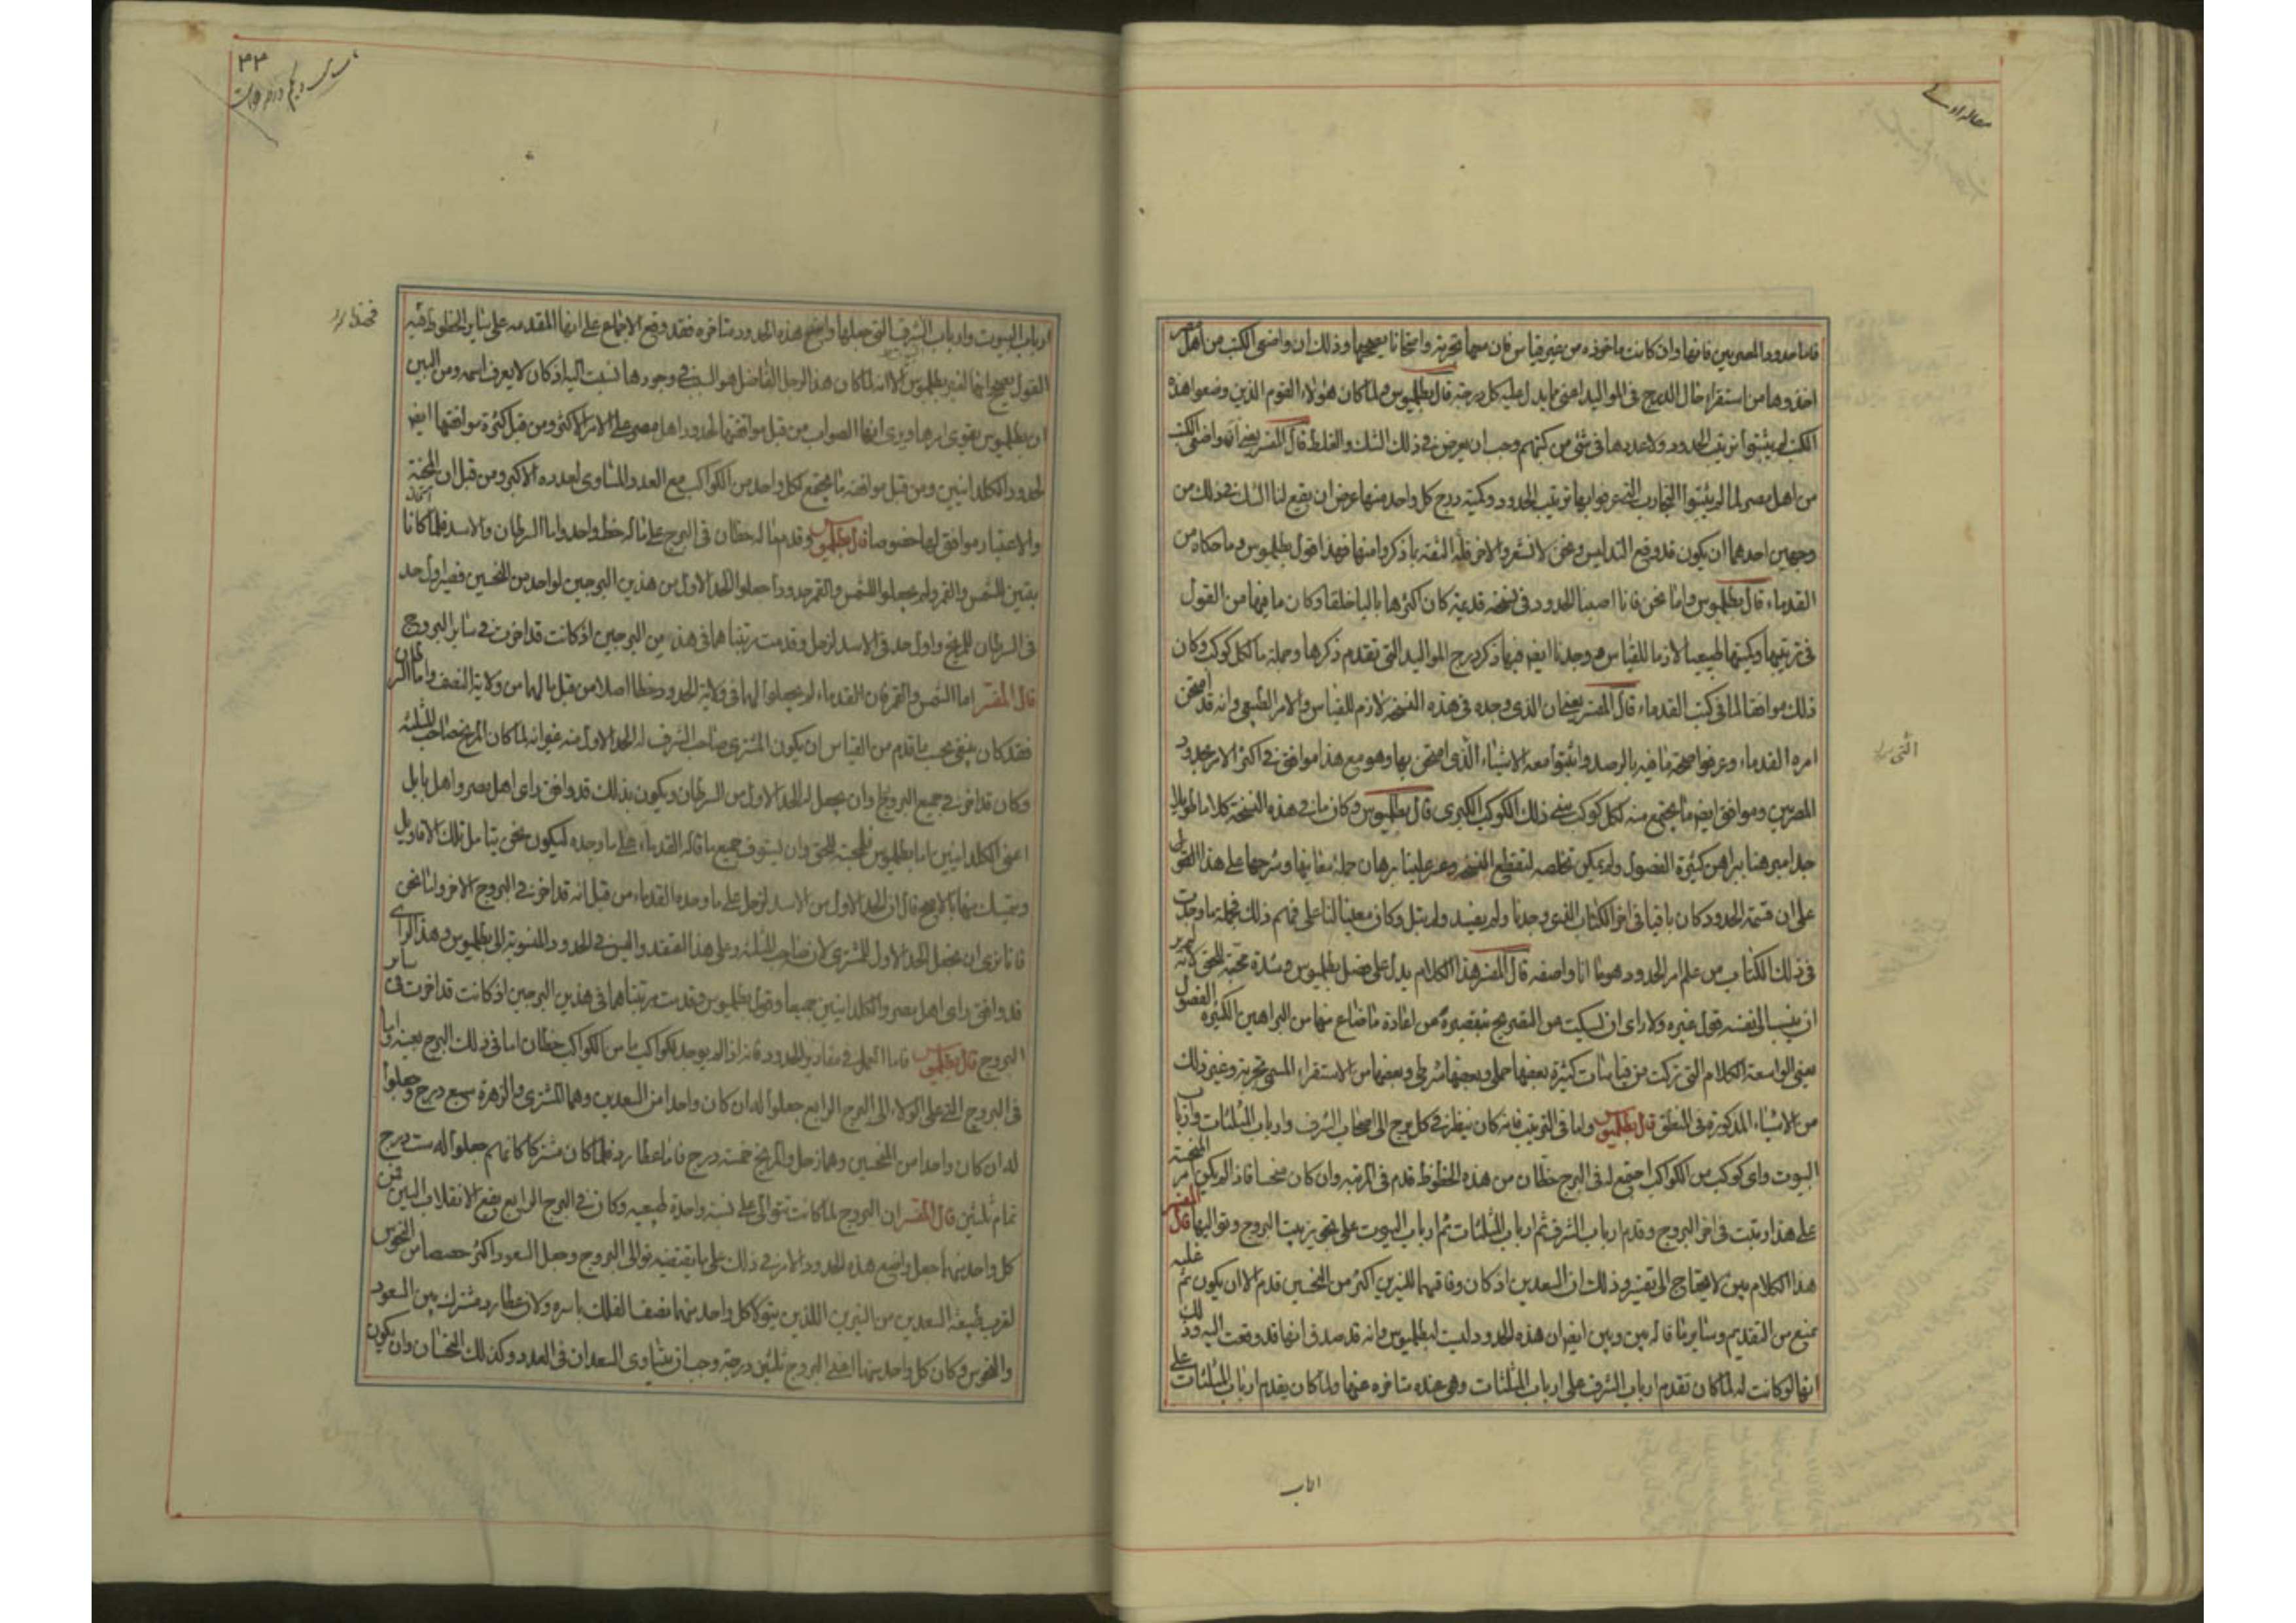 مقاله اولے
فاما حدود المصريين فانها وان كانت ماخوذه من غير قياس فان معها تجربة وامتحانا يصححها وذلك ان واضعى الكتب من اهل مصر
اخذوها من استقراء حال الدرج فى المواليد اعنى ما يدل عليه كل درجة قال بطلميوس ولما كان هؤلاء القوم الذين وضعوا هذه
الكتب لم يثبتوا ترتيب الحدود ولا عددها فى شئ من كتبهم وجب ان يعرض فى ذلك الشك والغلط قال المفسر يعنى انه واضعى الكتب
من اهل مصر لما لم يثبتوا التجارب التى عرفوا بها ترتيب الحدود وكمية درج كل واحد منها عرض ان يقع لنا الشك فى ذلك من
وجهين احدهما ان يكون قد وقع التدليس ونحن لا نشعر والاخر قلة الثقة بما ذكروا منها فهذا قول بطلميوس وما حكاه من
القدماء قال بطلميوس واما نحن فانا اصبنا الحدود فى نسخة قديمة كان اكثرها باليا خلقا وكان ما فيها من القول
فى ترتيبها وكميتها طبيعيا لازما للقياس ووجدنا ايضا فيها ذكر درج المواليد التى تقدم ذكرها وجملة ما لكل كوكب وكان
ذلك موافقا لما فى كتب القدماء قال المفسر يعنى ان الذى وجده فى هذه النسخة لازم للقياس والامر الطبيعى وانه قد امتحن
امره القدماء وعرفوا صحة ما فيه بالرصد واثبتوا معه الاشياء الذى امتحن بها وهو مع هذا موافق فى اكثر الامر لحدود
المصريين وموافق ايضا ما يجتمع منه لكل كوكب سنى ذلك الكوكب الكبرى قال بطلميوس وكان ما فى هذه النسخة كلاما طويلا
جدا مبرهنا ببراهين كثيرة الفصول ولم يمكن تخلصه لتقطع النسخة وعسر علينا برهان جملة معانيها وشرحها على هذا النحو
على ان قسمة الحدود كان باقيا فى اخر الكتاب الذى وجدنا ولم يفسد ولم يبل وكان معينا لنا على فهم ذلك فجملة ما وجدت
فى ذلك الكتاب من علم امر الحدود هو ما انا واصفه قال المفسر هذا الكلام يدل على فضل بطلميوس وشدة محبته للحق كانه لم ير
ان ينسب الى نفسه قول غيره ولا راى ان يسكت من التصريح بتقصيره عن اعادة ما ضاع منها من البراهين الكثيرة الفصول
يعنى الواسعة الكلام التى تركبت من قياسات كثيرة بعضها حملى وبعضها شرطى وبعضها من الاستقراء المسمى تجربة وغير ذلك
من الاشياء المذكورة فى المنطق قال بطلميوس واما فى الترتيب فانه كان ينظر فى كل برج الى اصحاب الشرف وارباب المثلثات وارباب
البيوت واى كوكب من الكواكب اجتمع له فى البرج حظان من هذه الحظوظ قدم فى المرتبة وان كان نحسا فاذا لم يكن امر النحسة
على هذا رتبت فى اخر البروج وقدم ارباب الشرف ثم ارباب المثلثات ثم ارباب البيوت على نحو ترتيب البروج وتواليها قال المفسر
هذا الكلام بين لا يحتاج الى تفسير وذلك ان السعدين اذ كان وفاقهما للنيرين اكثر من النحسين قدم الا ان يكون ثم علة
تمنع من التقديم وسائر ما قاله بين وبين ايضا ان هذه الحدود ليست لبطلميوس وانه قد صدق انها قد وقعت اليه وذلك
انها لو كانت له لما كان تقدم ارباب الشرف على ارباب المثلثات وهى عنده متاخره عنها ولما كان يقدم ارباب المثلثات على
ارباب
٣٣
ارباب البيوت وارباب الشرف التى جعلها واضع هذه الحدود متاخره فقد وقع الاجماع على انها المقدمه على سائر الحظوظ فهذا
القول يصحح انها لغير بطلميوس الا انه لما كان هذا الرجل الفاضل هو السبب فى وجودها نسبت اليه اذ كان لا يعرف اسمه ومن البين
ان بطلميوس يقوى امرها ويرى انها الصواب من قبل موافقتها لحدود اهل مصر على الامر الاكثر ومن قبل كثرة موافقتها ايضا
لحدود الكلدانيين ومن قبل موافقة ما يجتمع لكل واحد من الكواكب مع العدد المساوى لعدده الاكبر ومن قبل ان المحنة
والاعتبار موافق لها خصوصا قال بطلميوس وقدم ما له حظان فى البرج على ما له حظ واحد واما السرطان والاسد فلما كانا
بيتين للشمس والقمر ولم يجعلوا للشمس والقمر حدودا جعلوا الحد الاول من هذين البرجين لواحد من النحسين فصير اول حد
فى السرطان للمريخ واول حد فى الاسد لزحل وقدمت مرتبتاهما فى هذين البرجين اذ كانت قد اخرت فى سائر البروج
قال المفسر اما الشمس والقمر فان القدماء لم يجعلوا لهما فى ولاية الحدود حظا اصلا من قبل ما لهما من ولاية النصف واما السرطان
فقد كان ينبغى بحسب ما تقدم من القياس ان يكون المشترى صاحب الشرف له الحد الاول منه غير انه لما كان المريخ صاحب المثلثه
وكان قد اخر فى جميع البروج وان يجعل له الحد الاول من السرطان ويكون بذلك قد وافق راى اهل مصر واهل بابل
اعنى الكلدانيين اما بطلميوس فلمحبته للحق وان يستوفى جميع ما قاله القدماء على ما وجده ليكون نحن نتامل تلك الاقاويل
ونتمسك منها بالاصح قال ان الحد الاول من الاسد لزحل على ما وجده القدماء من قبل انه قد اخر فى البروج الاخر واما نحن
فانا نرى ان نجعل الحد الاول للمشترى لانه صاحب المثلثه وعلى هذا المعتقد والسنن فى الحدود المنسوبة الى بطلميوس وهذا الراى
قد وافق راى اهل مصر والكلدانيين جميعا وقول بطلميوس وقدمت مرتبتاهما فى هذين البرجين اذ كانت قد اخرت فى سائر
البروج قال بطلميوس فاما العمل فى مقادير الحدود فانه اذا لم يوجد لكواكب ما من الكواكب حظان اما فى ذلك البرج بعينه واما
فى البروج التى على الولاء الى البرج الرابع جعلوا له ان كان واحدا من السعدين وهما المشترى والزهرة سبع درج وجعلوا
له ان كان واحدا من النحسين وهما زحل والمريخ خمسة درج فاما عطارد فلما كان مشتركا كانهم جعلوا له ست درج
تمام ثلثين قال المفسر ان البروج لما كانت تتوالى على نسبة واحدة طبيعيه وكان فى البرج الرابع يقع الانقلاب البين فمن
كل واحد منها جعل واضع هذه الحدود الامر فى ذلك على ما يقتضيه توالى البروج وجعل السعود اكثر حصصا من النحوس
لقرب طبيعة السعدين من النيرين اللذين يتولا كل واحد منهما نصف الفلك باسره ولان عطارد مشترك بين السعود
والنحوس وكان كل واحد منها اعنى البروج ثلثين درجة وجب ان يتساوى السعدان فى العدد وكذلك النحسان وان يكون